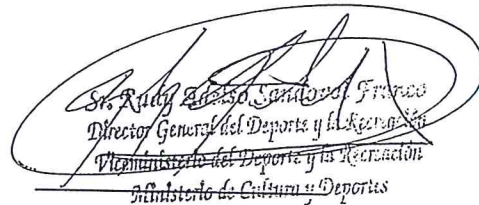 Sr. Rudy Adelso Sandoval Franco
Director General del Deporte y la Recreación
Viceministerio del Deporte y la Recreación
Ministerio de Cultura y Deportes